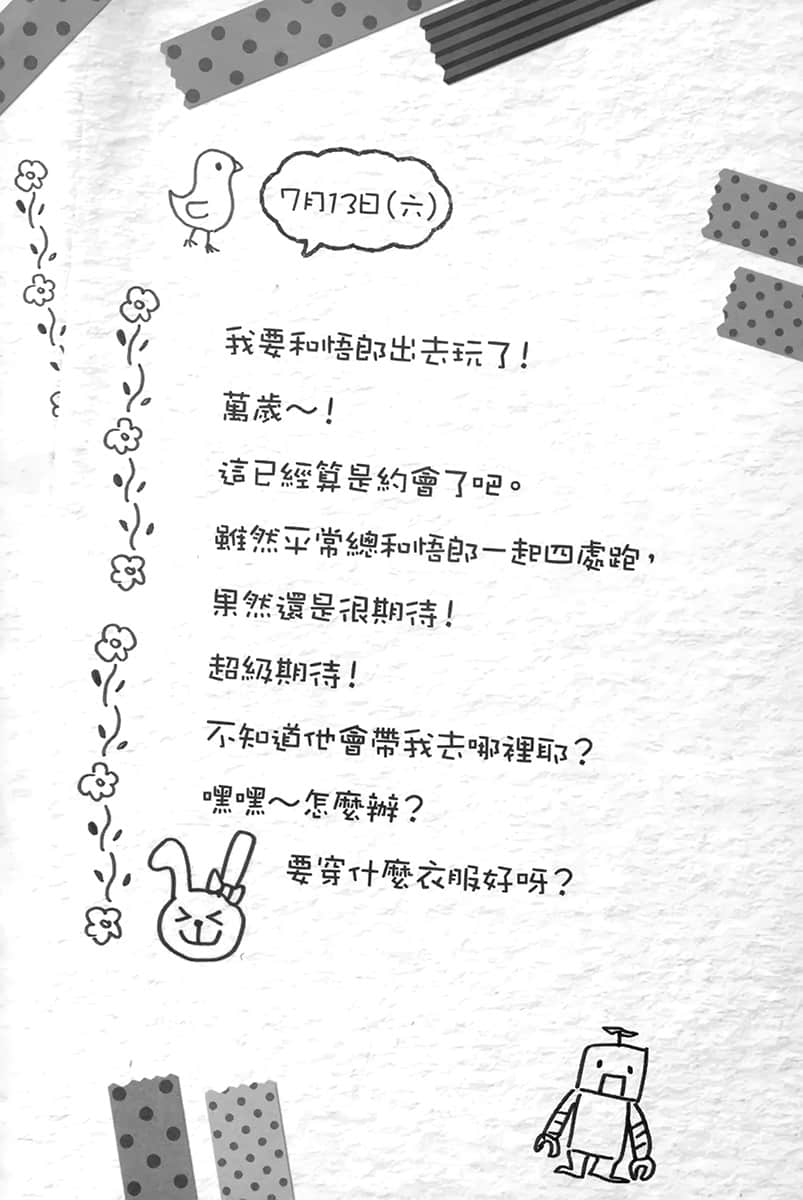 7月13日(六)
我要和悟郎出去玩了!
萬歲~!
這已經算是約會了吧。
雖然平常總和悟郎一起四處跑,
果然還是很期待!
超級期待!
不知道他會帶我去哪裡耶?
嘿嘿~怎麼辦?
要穿什麼衣服好呀?